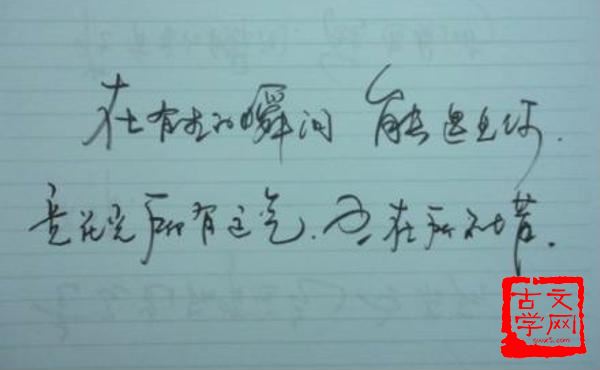 在有生的瞬间 能遇见你.
竟花光所有运气.也在所不惜.
古文
学网